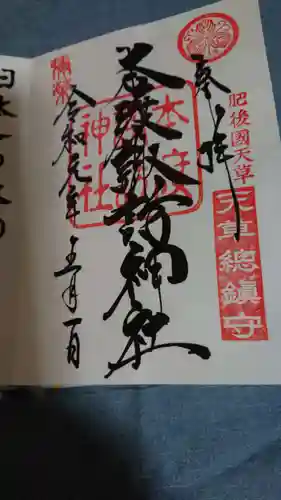 奉拝
肥後國天草
天草總鎮守
本渡諏訪神社
本渡
諏訪
神社
令和元年
五月一日